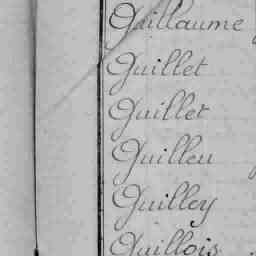 Guillaume
Guillet
Guillet
Guilleu
Guilley
Guillois